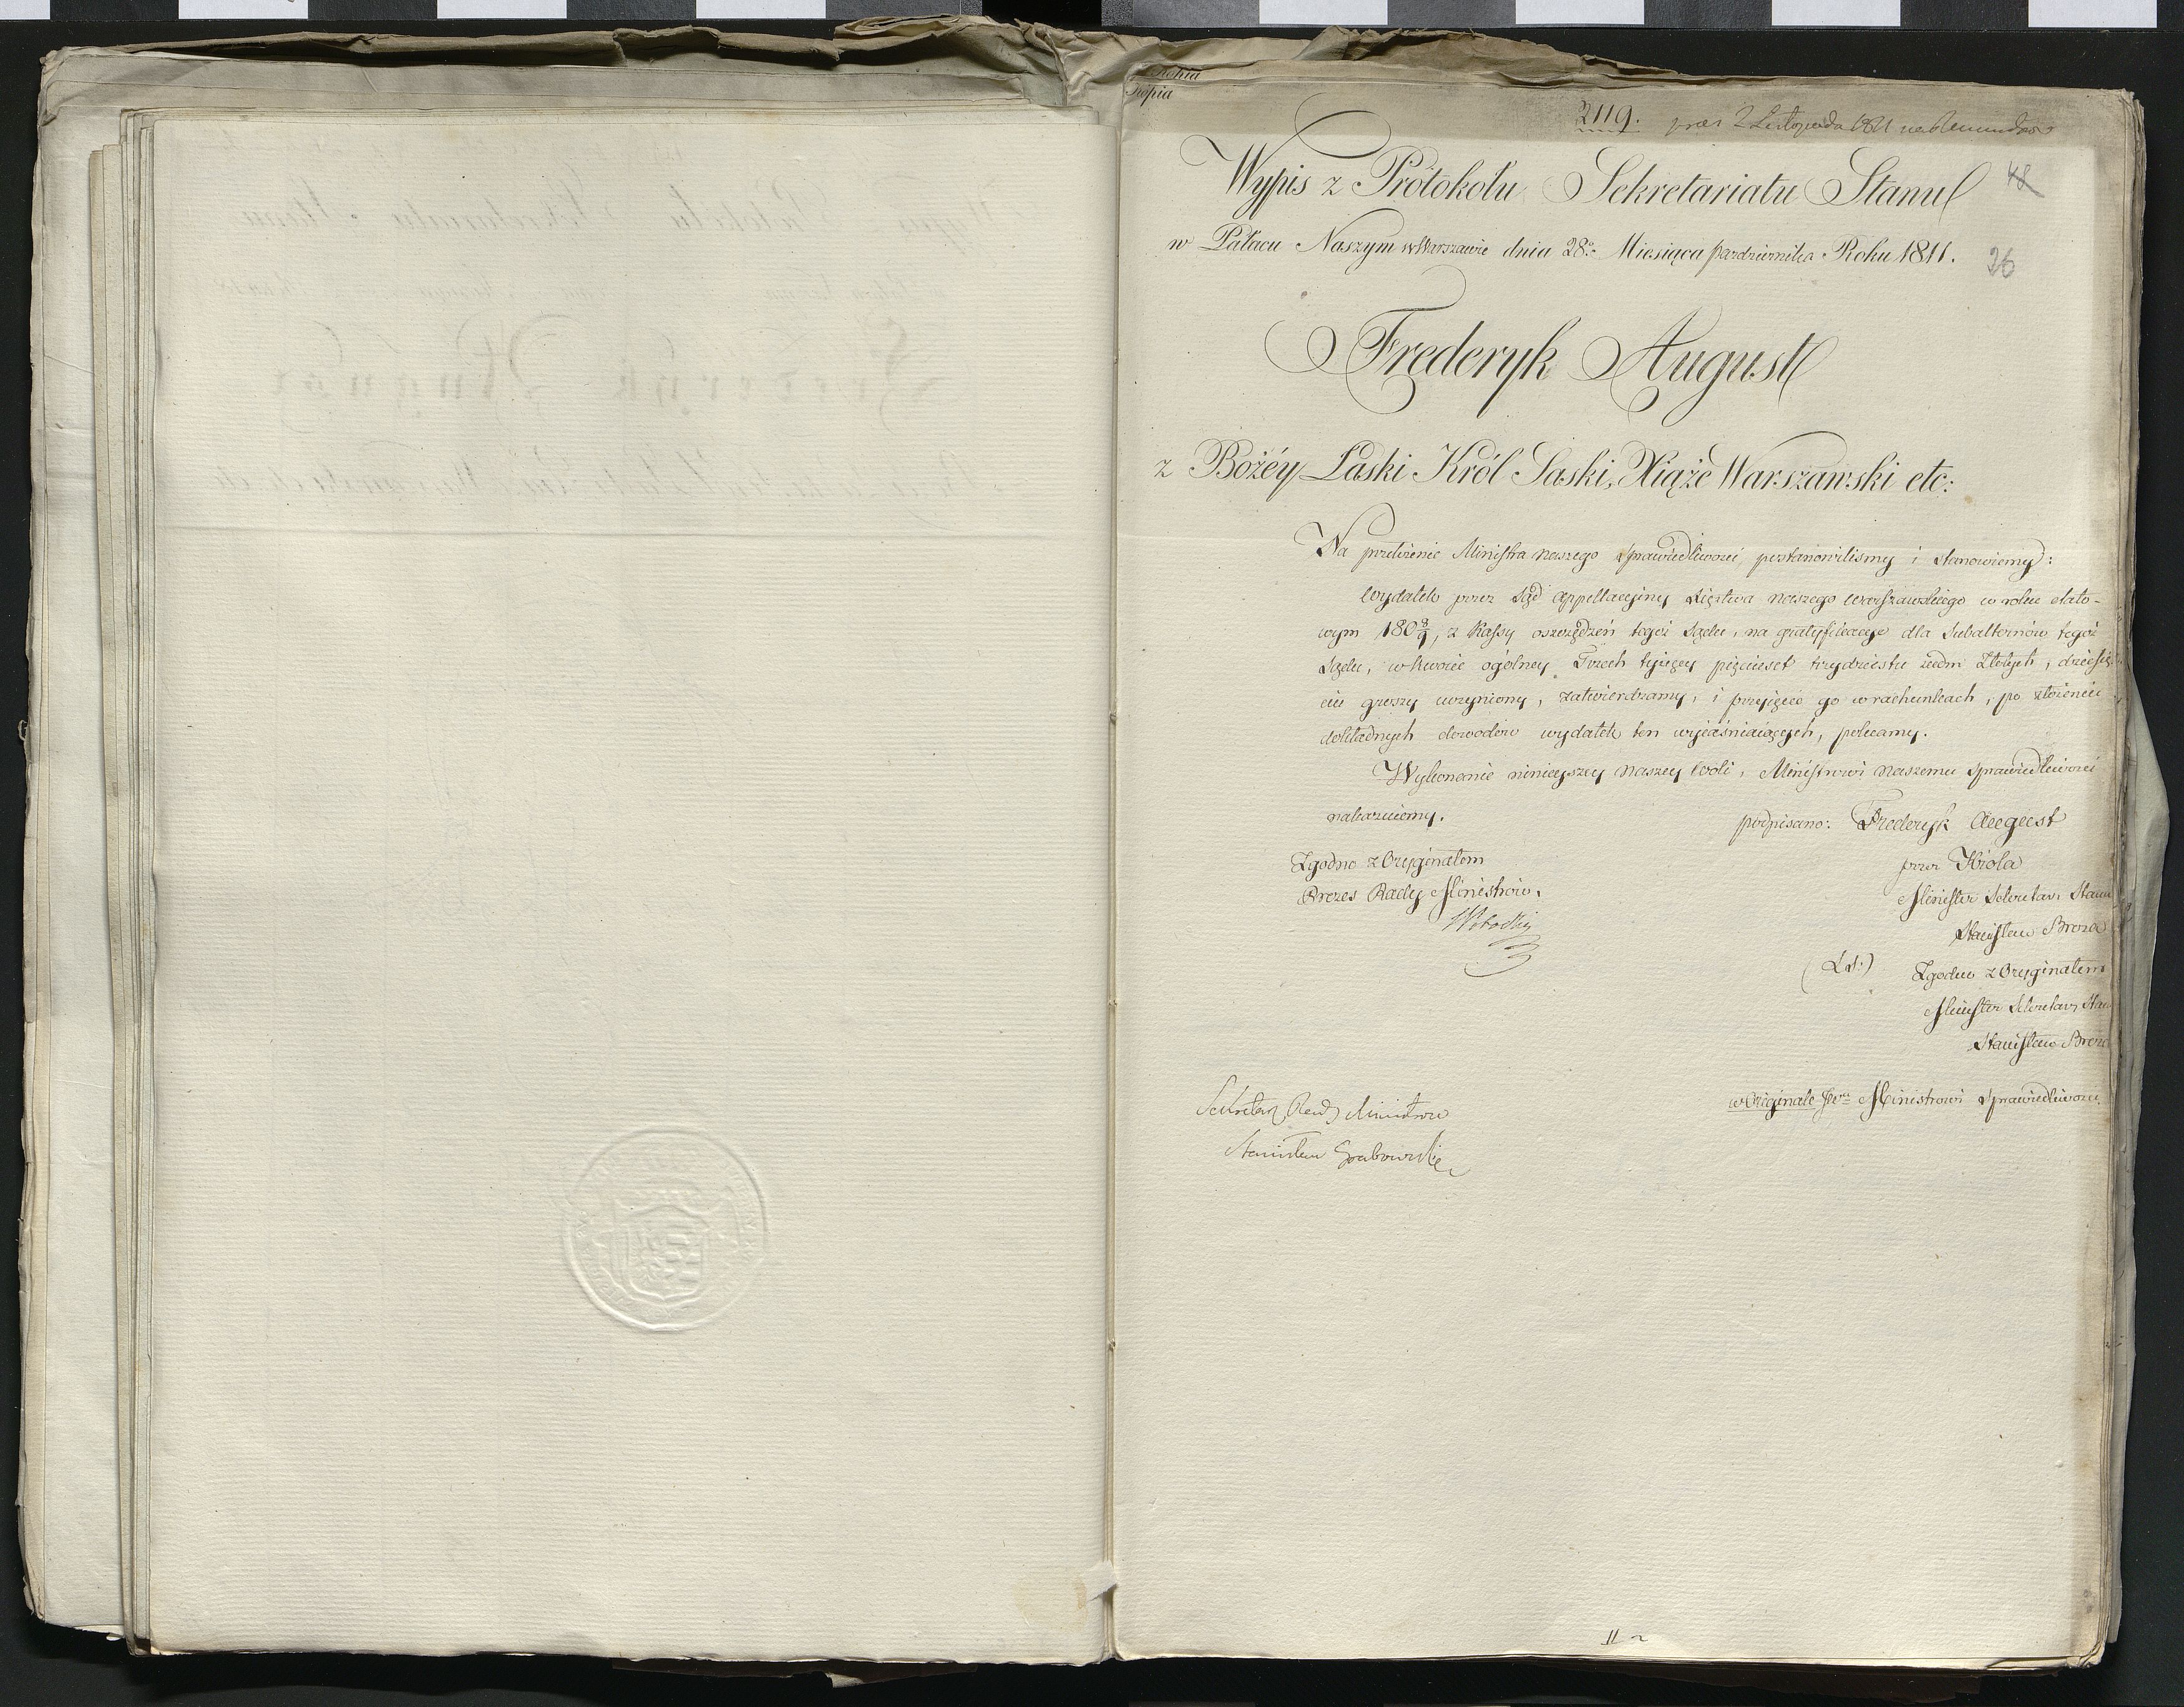 Kopia
Kopia
2119. pras 2 Listopada 1811
Wypis z Protokołu Sekretariatu Stanu 48
w Pałacu Naszym w Warszawie dnia 28.º Miesiąca pazdziernika Roku 1811. 26
Frederyk August
z Bożéy Łaski Król Saski, Xiąże Warszawski etc:
Na przełożenie Ministra naszego Sprawiedliwości, postanowiliśmy i stanowiemy:
Wydatek przez Sąd Appellacyiny Xięstwa naszego Warszawskiego w roku etato-
wym 180 8/9, z Kassy oszczędzeń tegoż Sądu, na gratyfikacye dla Subalternów tegoż
Sądu, w kwocie ogólney Trzech tysięcy pięciuset trzydziestu siedm Złotych, dziesię
ciu groszy uczyniony, zatwierdzamy, i przyjęcie go w rachunkach, po złożeniu
dokładnych dowodów wydatek ten wyjaśniaiących, polecamy.
Wykonanie ninieyszey naszey woli, Ministrowi naszemu Sprawiedliwości
nakazuiemy.
podpisano: Frederyk August
Zgodno z Oryginałem
przez Króla
Prezes Rady Ministrów.
Minister Sekretarz Stanu
Stanisław Breza
(L.S.) Zgodno z Oryginałem
Minister Sekretarz Stan
Stanisław Breza
Sekretarz Rady Ministrów
w Originale JWmu Ministrowi Sprawiedliwości
Stanisław Grabowski